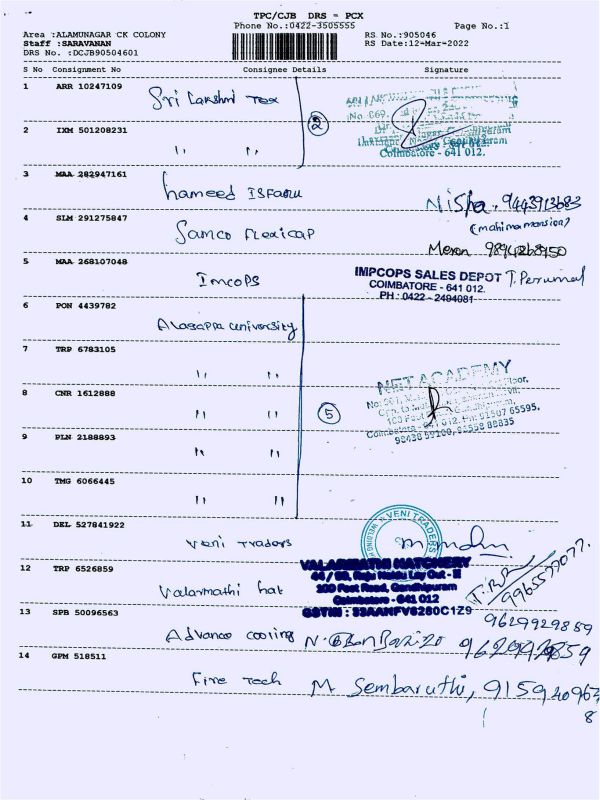 TPC/CJB DRS = PCX
Phone No.:0422-3505555 Page No.:1
Area :ALAMUNAGAR CK COLONY RS No.:905046
Staff :SARAVANAN RS Date:12-Mar-2022
DRS No. :DCJB90504601
S No Consignment No Consignee Details Signature
1 ARR 10247109 Sri Lakshmi Tex
2 IXM 501208231 " "
2
Coimbatore - 641 012.
3 MAA 282947161 hameed
Nisha.
(mahima mansion)
4 SLM 291275847 Samco Flexicap
5 MAA 268107048 Imcops
IMPCOPS SALES DEPOT T. Perumal
COIMBATORE - 641 012.
PH : 0422 - 2494081
6 PON 4439782 Alagappa university
7 TRP 6783105 " "
NET ACADEMY
8 CNR 1612888 " "
5
9 PLN 2188893 " "
10 TMG 6066445 " "
11 DEL 527841922 Veni Traders
VENI TRADERS
12 TRP 6526859 Valarmathi hat
VALARMATHI HATCHERY
100 Feet Road, Gandhipuram
Coimbatore - 641 012
GSTIN : 33AANFV6280C1Z9
9965577077.
13 SPB 50096563 Advance cooling
9629929859
14 GPM 518511 Fire Tech M Sembaruthi,